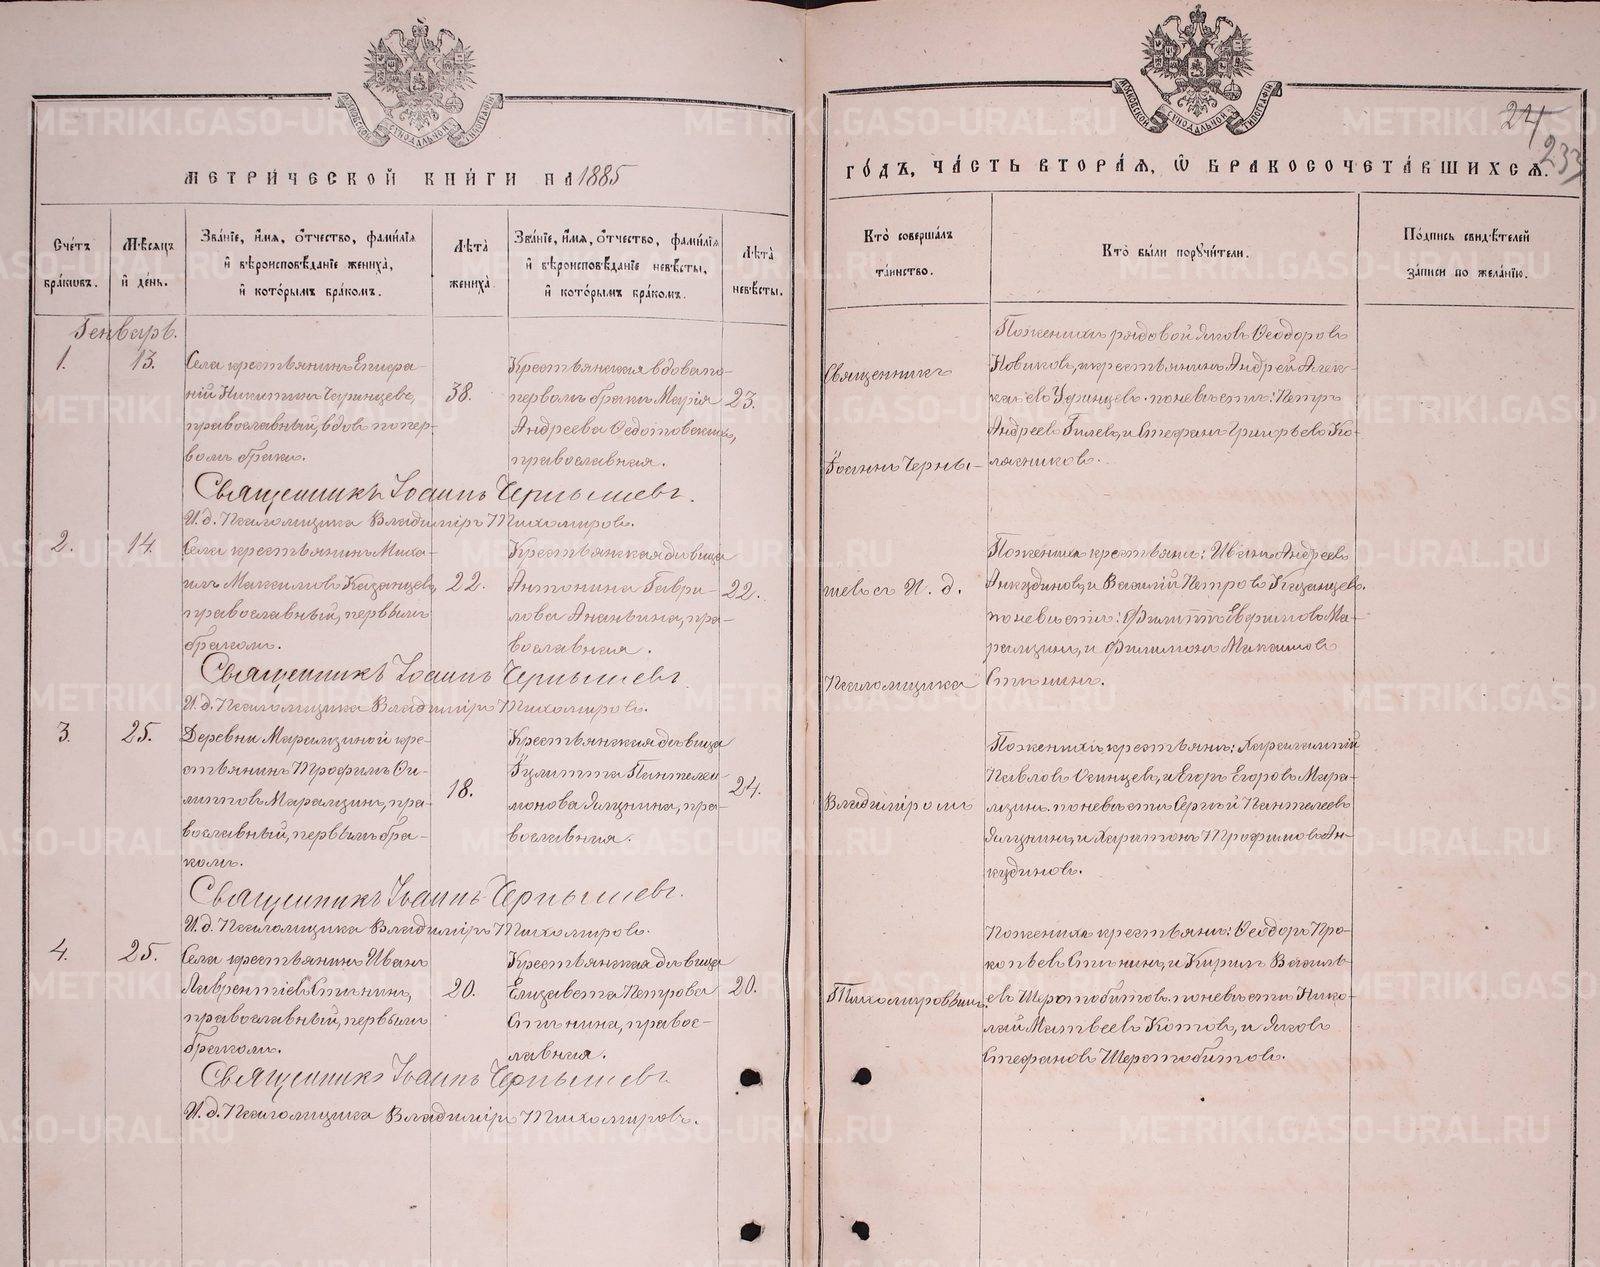 МОСКОВСКОЙ СѴНОДАЛЬНОЙ ТИПОГРАФІИ
МЕТРИ́ЧЕСКОЙ КНИ́ГИ НА 1885
Сче́тъ бра́кѡвъ.
Мѣ́сяцъ и҆ де́нь.
Зва́нїе, и҆́мѧ, ѻ҆́тчество, фами́лїѧ и҆ вѣроисповѣ́данїе жениха̀, и҆ кото́рымъ бра́комъ.
Лѣта̀ жениха̀.
Зва́нїе, и҆́мѧ, ѻ҆́тчество, фами́лїѧ и҆ вѣроисповѣ́данїе невѣ́сты, и҆ кото́рымъ бра́комъ.
Лѣта̀ невѣ́сты.
Генварь.
1.
13.
Села крестьянинъ Епифа-
ній Никитинъ
православный, вдовъ по пер-
вомъ бракѣ.
38.
Крестьянская вдова по
первомъ бракѣ Марія
Андреева Федотовскихъ,
православная.
23.
Священникъ Іоаннъ Чернышевъ.
И. д. Псаломщика Владиміръ Тихомировъ.
2.
14.
Села крестьянинъ Миха-
илъ Максимовъ Казанцевъ,
православный, первымъ
бракомъ.
22.
Крестьянская дѣвица
Антонина Гаври-
лова Ананьина, пра-
вославная.
22.
Священникъ Іоаннъ Чернышевъ.
И. д. Псаломщика Владиміръ Тихомировъ.
3.
25.
Деревни Марамзиной кре-
стьянинъ Трофимъ Фи-
липповъ Марамзинъ, пра-
вославный, первымъ бра-
комъ.
18.
Крестьянская дѣвица
Іулитта Пантелеи-
монова Ямщина, пра-
вославная.
24.
Священникъ Іоаннъ Чернышевъ.
И. д. Псаломщика Владиміръ Тихомировъ.
4.
25.
Села крестьянинъ Иванъ
Лаврентіевъ Стининъ,
православный, первымъ
бракомъ.
20.
Крестьянская дѣвица
Елизавета Петрова
Стинина, правос-
лавная.
20.
Священникъ Іоаннъ Чернышевъ.
И. д. Псаломщика Владиміръ Тихомировъ.
МОСКОВСКОЙ СѴНОДАЛЬНОЙ ТИПОГРАФІИ
24
233
ГО́ДЪ, ЧА́СТЬ ВТОРА́Ѧ, Ѽ БРАКОСОЧЕТА́ВШИХСѦ.
Кто̀ соверша́лъ та́инство.
Кто̀ бы́ли порꙋчи́тели.
По́дпись свидѣ́телей за́писи по жела́нїю.
Священникъ
Іоаннъ Черны-
шевъ съ И. д.
Псаломщика
Владиміромъ
Тихомировымъ.
По женихѣ рядовой Яковъ Феодоровъ
Новиковъ, и крестьянинъ Андрей Алек-
сѣевъ Уфинцевъ. по невѣстѣ: Петръ
Андреевъ Гилевъ, и Стефанъ Григорьевъ Ко-
лясниковъ.
По женихѣ крестьяне: Иванъ Андреевъ
Анкудиновъ, и Василій Петровъ Казанцевъ.
по невѣстѣ: Филиппъ Евфимовъ Ма-
рамзинъ, и Филимонъ Максимовъ
Стининъ.
По женихѣ крестьяне: Харалампій
Павловъ Осинцевъ, и Егоръ Егоровъ Мара-
мзинъ. по невѣстѣ Сергѣй Пантелеевъ
Ямщинъ, и Харитонъ Трофимовъ Ан-
кудиновъ.
По женихѣ крестьяне: Феодоръ Про-
копьевъ Стининъ, и Кирилъ Василь-
евъ Шерстобитовъ. по невѣстѣ Нико-
лай Матвеевъ Котовъ, и Яковъ
Стефановъ Шерстобитовъ.
METRIKI.GASO-URAL.RU